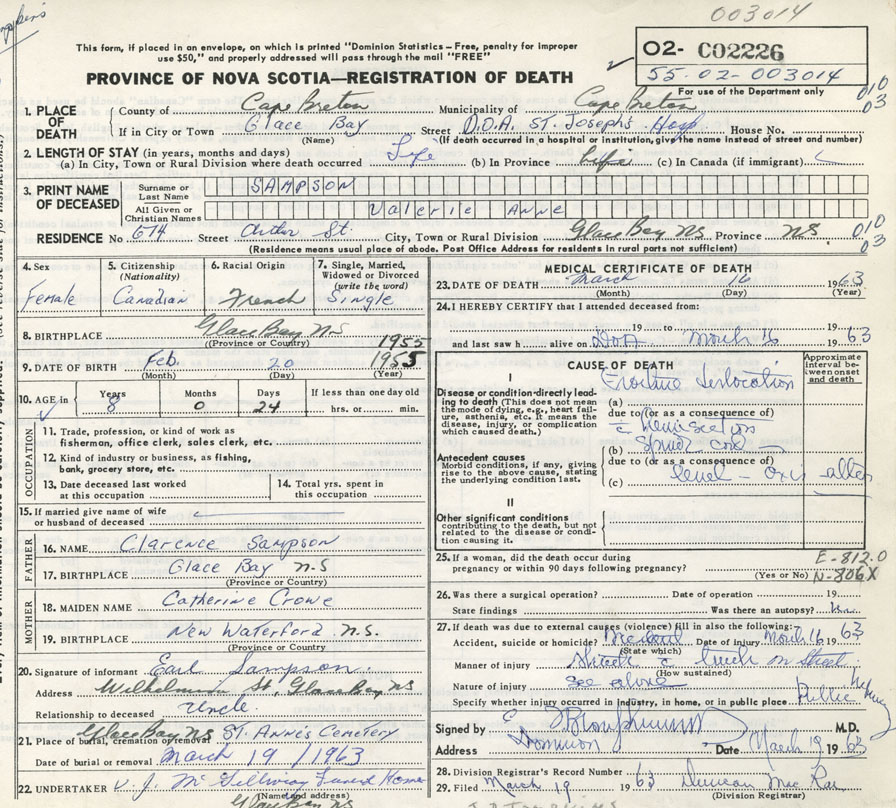 003014
This form, if placed in an envelope, on which is printed "Dominion Statistics – Free, penalty for improper
use $50," and properly addressed will pass through the mail "FREE"
PROVINCE OF NOVA SCOTIA—REGISTRATION OF DEATH
02- C02226
55-02-003014
For use of the Department only
010
03
1. PLACE OF DEATH
County of Cape Breton Municipality of Cape Breton
If in City or Town Glace Bay Street D.O.A. St. Joseph's Hosp House No.
(Name) (If death occurred in a hospital or institution, give the name instead of street and number)
2. LENGTH OF STAY (in years, months and days)
(a) In City, Town or Rural Division where death occurred Life (b) In Province Life (c) In Canada (if immigrant)
3. PRINT NAME OF DECEASED
Surname or Last Name SAMPSON
All Given or Christian Names Valerie Anne
RESIDENCE No 674 Street Arthur St. City, Town or Rural Division Glace Bay NS Province NS
010
03
(Residence means usual place of abode. Post Office Address for residents in rural parts not sufficient)
4. Sex
Female
5. Citizenship (Nationality)
Canadian
6. Racial Origin
French
7. Single, Married, Widowed or Divorced (write the word)
Single
8. BIRTHPLACE Glace Bay NS
(Province or Country)
1955
9. DATE OF BIRTH Feb. 20 1955
(Month) (Day) (Year)
10. AGE in Years Months Days If less than one day old
8 0 24 hrs. or min.
OCCUPATION
11. Trade, profession, or kind of work as
fisherman, office clerk, sales clerk, etc.
12. Kind of industry or business, as fishing,
bank, grocery store, etc.
13. Date deceased last worked
at this occupation
14. Total yrs. spent in
this occupation
15. If married give name of wife
or husband of deceased
FATHER
16. NAME Clarence Sampson
17. BIRTHPLACE Glace Bay N.S
(Province or Country)
MOTHER
18. MAIDEN NAME Catherine Crowe
19. BIRTHPLACE New Waterford N.S.
(Province or Country)
20. Signature of informant Earl Sampson
Address Wilhelmina St, Glace Bay NS
Relationship to deceased Uncle.
21. Place of burial, cremation or removal Glace Bay NS St. Ann's Cemetery
Date of burial or removal March 19 / 1963
22. UNDERTAKER V. J. McGillivray Funeral Home
(Name and address)
Glace Bay NS
MEDICAL CERTIFICATE OF DEATH
23. DATE OF DEATH March 16 1963
(Month) (Day) (Year)
24. I HEREBY CERTIFY that I attended deceased from:
19 to 19
and last saw h alive on DOA March 16 1963
CAUSE OF DEATH
Approximate interval between onset and death
I
Disease or condition directly leading to death (This does not mean the mode of dying, e.g., heart failure, asthenia, etc. It means the disease, injury, or complication which caused death.)
(a) Fracture dislocation
due to (or as a consequence of)
Antecedent causes
Morbid conditions, if any, giving rise to the above cause, stating the underlying condition last.
(b) hemisection
Spinal cord
due to (or as a consequence of)
(c) level –
II
Other significant conditions
contributing to the death, but not related to the disease or condition causing it.
25. If a woman, did the death occur during
pregnancy or within 90 days following pregnancy?
(Yes or No)
E-812.0
N-806X
26. Was there a surgical operation? Date of operation 19
State findings Was there an autopsy?
27. If death was due to external causes (violence) fill in also the following:
Accident, suicide or homicide? Date of injury March 16 1963
(State which)
Manner of injury Struck c truck on street
(How sustained)
Nature of injury see above
Specify whether injury occurred in industry, in home, or in public place Public highway
Signed by M.D.
Address Dominion Date March 19 1963
28. Division Registrar's Record Number
29. Filed March 19 1963 Duncan MacRae
(Division Registrar)